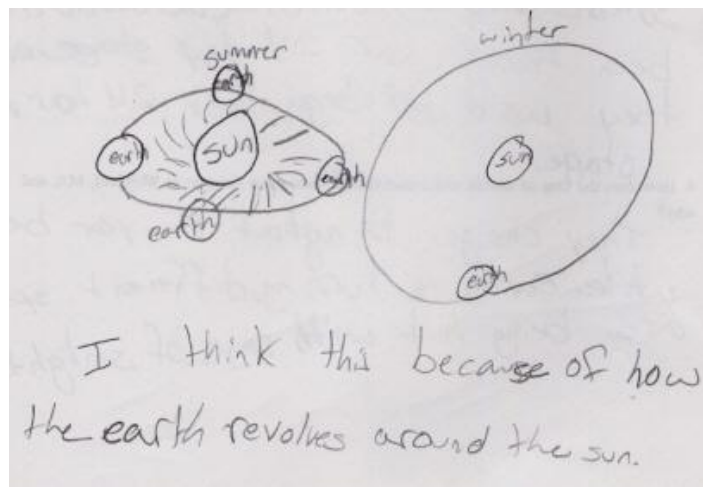 summer
winter
earth
earth
sun
sun
earth
earth
earth
I think this because of how
the earth revolves around the sun.